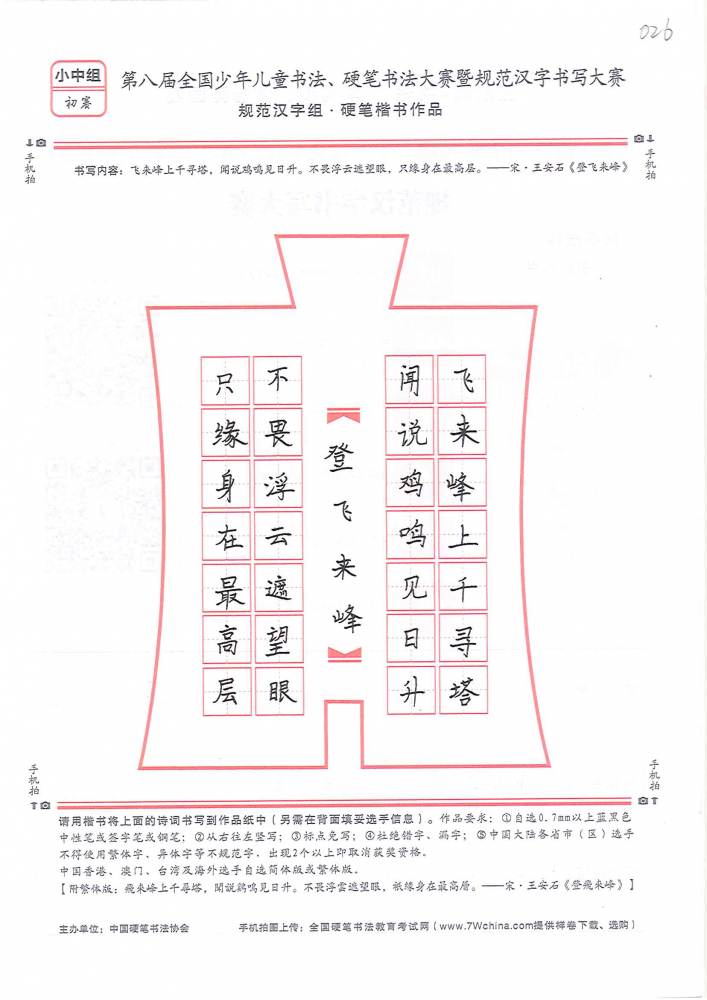 026
小中组
初赛
第八届全国少年儿童书法、硬笔书法大赛暨规范汉字书写大赛
规范汉字组·硬笔楷书作品
手机拍
手机拍
书写内容：飞来峰上千寻塔，闻说鸡鸣见日升。不畏浮云遮望眼，只缘身在最高层。——宋·王安石《登飞来峰》
飞来峰上千寻塔
闻说鸡鸣见日升
《登飞来峰》
不畏浮云遮望眼
只缘身在最高层
手机拍
手机拍
请用楷书将上面的诗词书写到作品纸中（另需在背面填妥选手信息）。作品要求：①自选0.7mm以上蓝黑色
中性笔或签字笔或钢笔；②从右往左竖写；③标点免写；④杜绝错字、漏字；⑤中国大陆各省市（区）选手
不得使用繁体字、异体字等不规范字，出现2个以上即取消获奖资格。
中国香港、澳门、台湾及海外选手自选简体版或繁体版。
【附繁体版：飛来峰上千尋塔，聞說鷄鳴見日升。不畏浮雲遮望眼，祇缘身在最高層。——宋·王安石《登飛来峰》】
主办单位：中国硬笔书法协会
手机拍图上传：全国硬笔书法教育考试网（www.7Wchina.com提供样卷下载、选购）